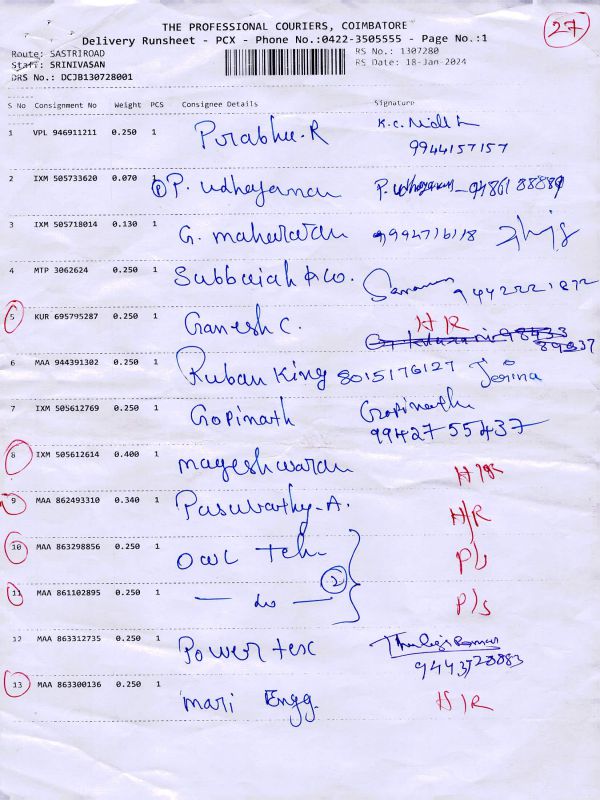 27
THE PROFESSIONAL COURIERS, COIMBATORE
Delivery Runsheet - PCX - Phone No.:0422-3505555 - Page No.:1
Route: SASTRIROAD
RS No.: 1307280
Staff: SRINIVASAN
RS Date: 18-Jan-2024
DRS No.: DCJB130728001
S No Consignment No Weight PCS Consignee Details Signature
1 VPL 946911211 0.250 1 Prabhu.R
9944157157
2 IXM 505733620 0.070 1 P. udhayaman P. udhayaman
3 IXM 505718014 0.130 1 G. maharavan 9994716118
4 MTP 3062624 0.250 1 Subbaiah & co.
9442221872
5 KUR 695795287 0.250 1 Ganesh C. H R
6 MAA 944391302 0.250 1 Ruban King 8015176127 Jerina
7 IXM 505612769 0.250 1 Gopinath Gopinath
9942755437
8 IXM 505612614 0.400 1 mageshwaran H/R
9 MAA 862493310 0.340 1 Pasuvathy-A. H/R
10 MAA 863298856 0.250 1 OWL Teh
2
11 MAA 861102895 0.250 1 — do — P/s
12 MAA 863312735 0.250 1 Powertex
13 MAA 863300136 0.250 1 mari Engg. H/R